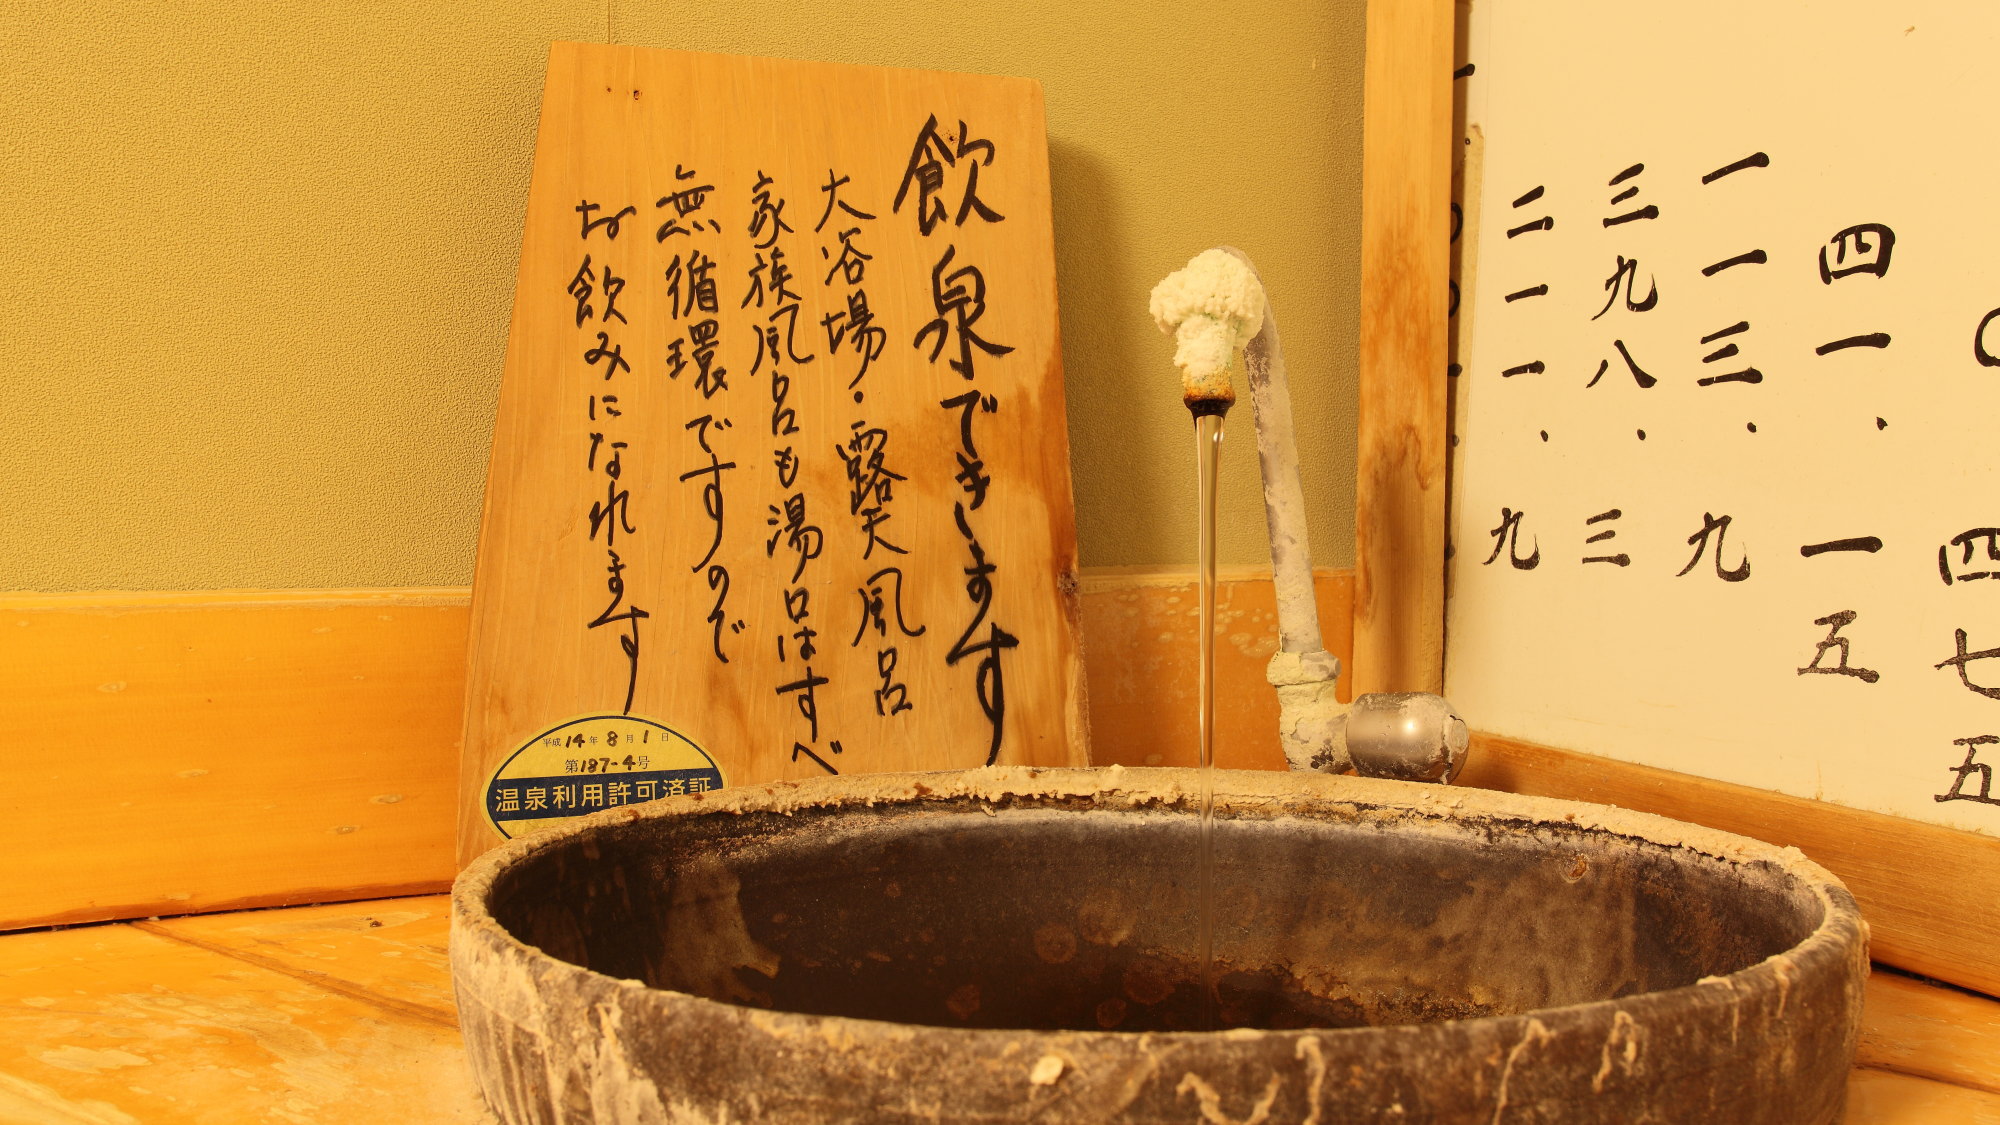 飲泉できます
大浴場・露天風呂
家族風呂も湯口はすべ
無循環ですので
お飲みになれます
平成14年8月1日
第187-4号
温泉利用許可済証
四七五
四一、一五
一一三.九
三九八.三
二一一.九